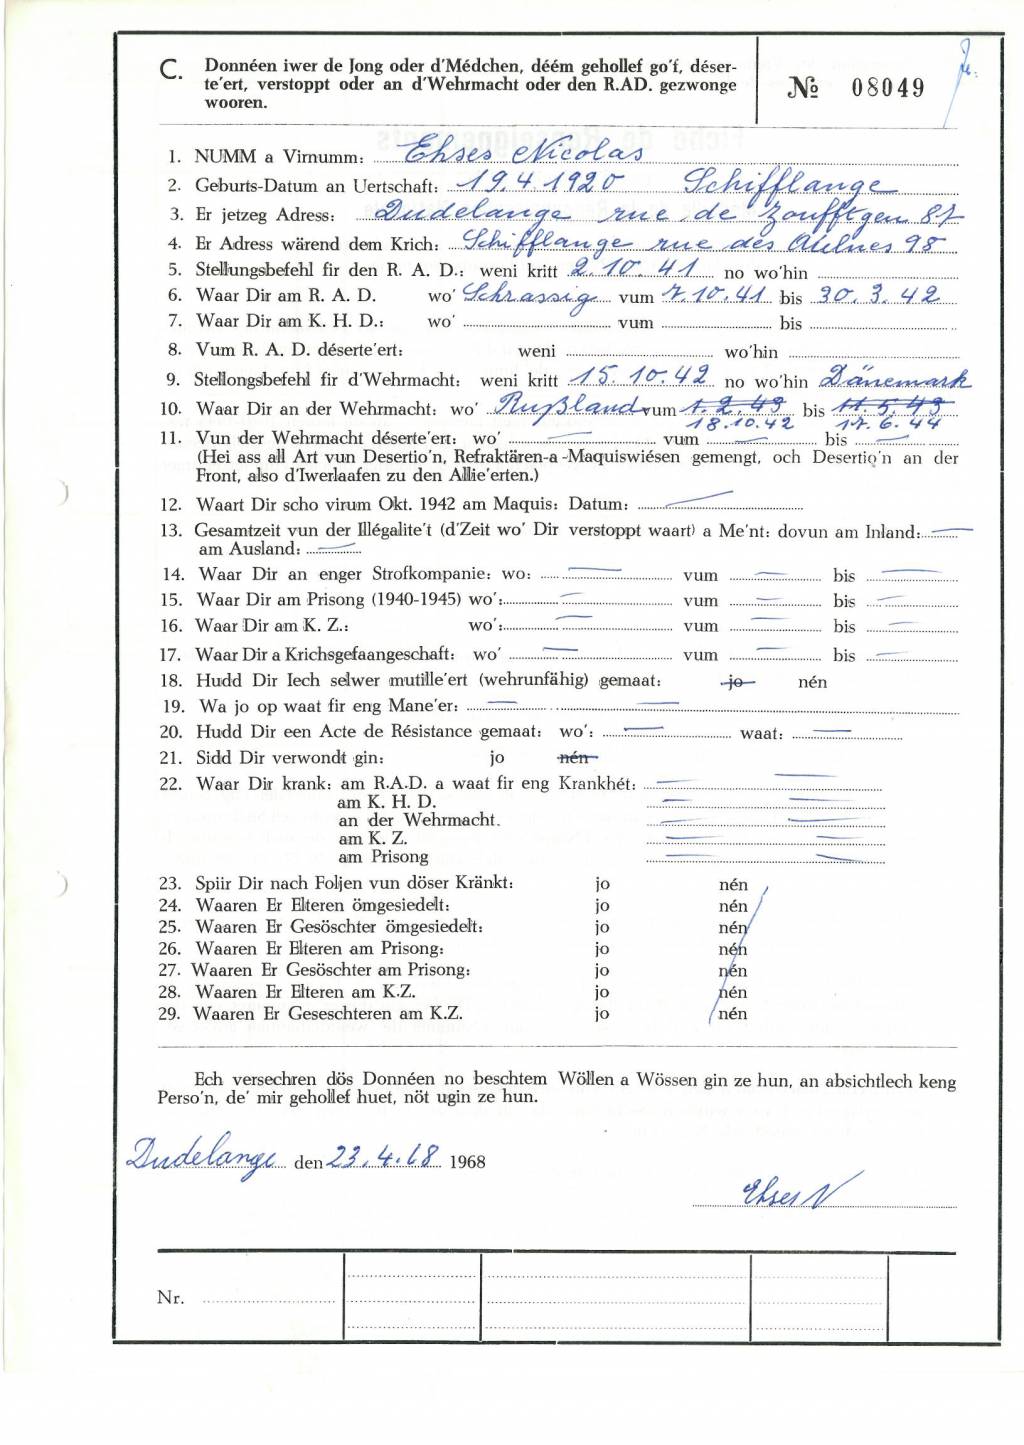 C. Donnéen iwer de Jong oder d'Médchen, déém gehollef go'f, déser-
te'ert, verstoppt oder an d'Wehrmacht oder den R.AD. gezwonge
wooren.
№ 08049
1. NUMM a Virnumm: Ehses Nicolas
2. Geburts-Datum an Uertschaft: 19.4.1920 Schifflange
3. Er jetzeg Adress: Dudelange rue de Zoufftgen 87
4. Er Adress wärend dem Krich: Schifflange rue des Aulnes 98
5. Stellungsbefehl fir den R. A. D.: weni kritt 2.10.41 no wo'hin
6. Waar Dir am R. A. D. wo' Schrassig vum 7.10.41 bis 30.3.42
7. Waar Dir am K. H. D.: wo' vum bis
8. Vum R. A. D. déserte'ert: weni wo'hin
9. Stellongsbefehl fir d'Wehrmacht: weni kritt 15.10.42 no wo'hin Dänemark
10. Waar Dir an der Wehrmacht: wo' Rußland vum 1.2.43 bis 11.5.43
18.10.42 17.6.44
11. Vun der Wehrmacht déserte'ert: wo' — vum — bis —
(Hei ass all Art vun Desertio'n, Refraktären-a-Maquiswiésen gemengt, och Desertio'n an der
Front, also d'Iwerlaafen zu den Allie'erten.)
12. Waart Dir scho virum Okt. 1942 am Maquis: Datum: —
13. Gesamtzeit vun der Illégalite't (d'Zeit wo' Dir verstoppt waart) a Me'nt: dovun am Inland: —
am Ausland: —
14. Waar Dir an enger Strofkompanie: wo: — vum — bis —
15. Waar Dir am Prisong (1940-1945) wo': — vum — bis —
16. Waar Dir am K. Z.: wo': — vum — bis —
17. Waar Dir a Krichsgefaangeschaft: wo' — vum — bis —
18. Hudd Dir Iech selwer mutille'ert (wehrunfähig) gemaat: jo nén
19. Wa jo op waat fir eng Mane'er: — —
20. Hudd Dir een Acte de Résistance gemaat: wo': — waat: —
21. Sidd Dir verwondt gin: jo nén
22. Waar Dir krank: am R.A.D. a waat fir eng Krankhét: — —
am K. H. D. — —
an der Wehrmacht. — —
am K. Z. — —
am Prisong — —
23. Spiir Dir nach Foljen vun döser Kränkt: jo nén
24. Waaren Er Elteren ömgesiedelt: jo nén
25. Waaren Er Gesöschter ömgesiedelt: jo nén
26. Waaren Er Elteren am Prisong: jo nén
27. Waaren Er Gesöschter am Prisong: jo nén
28. Waaren Er Elteren am K.Z. jo nén
29. Waaren Er Geseschteren am K.Z. jo nén
Ech versechren dös Donnéen no beschtem Wöllen a Wössen gin ze hun, an absichtlech keng
Perso'n, de' mir gehollef huet, nöt ugin ze hun.
Dudelange den 23.4.68 1968
Ehses N
Nr.